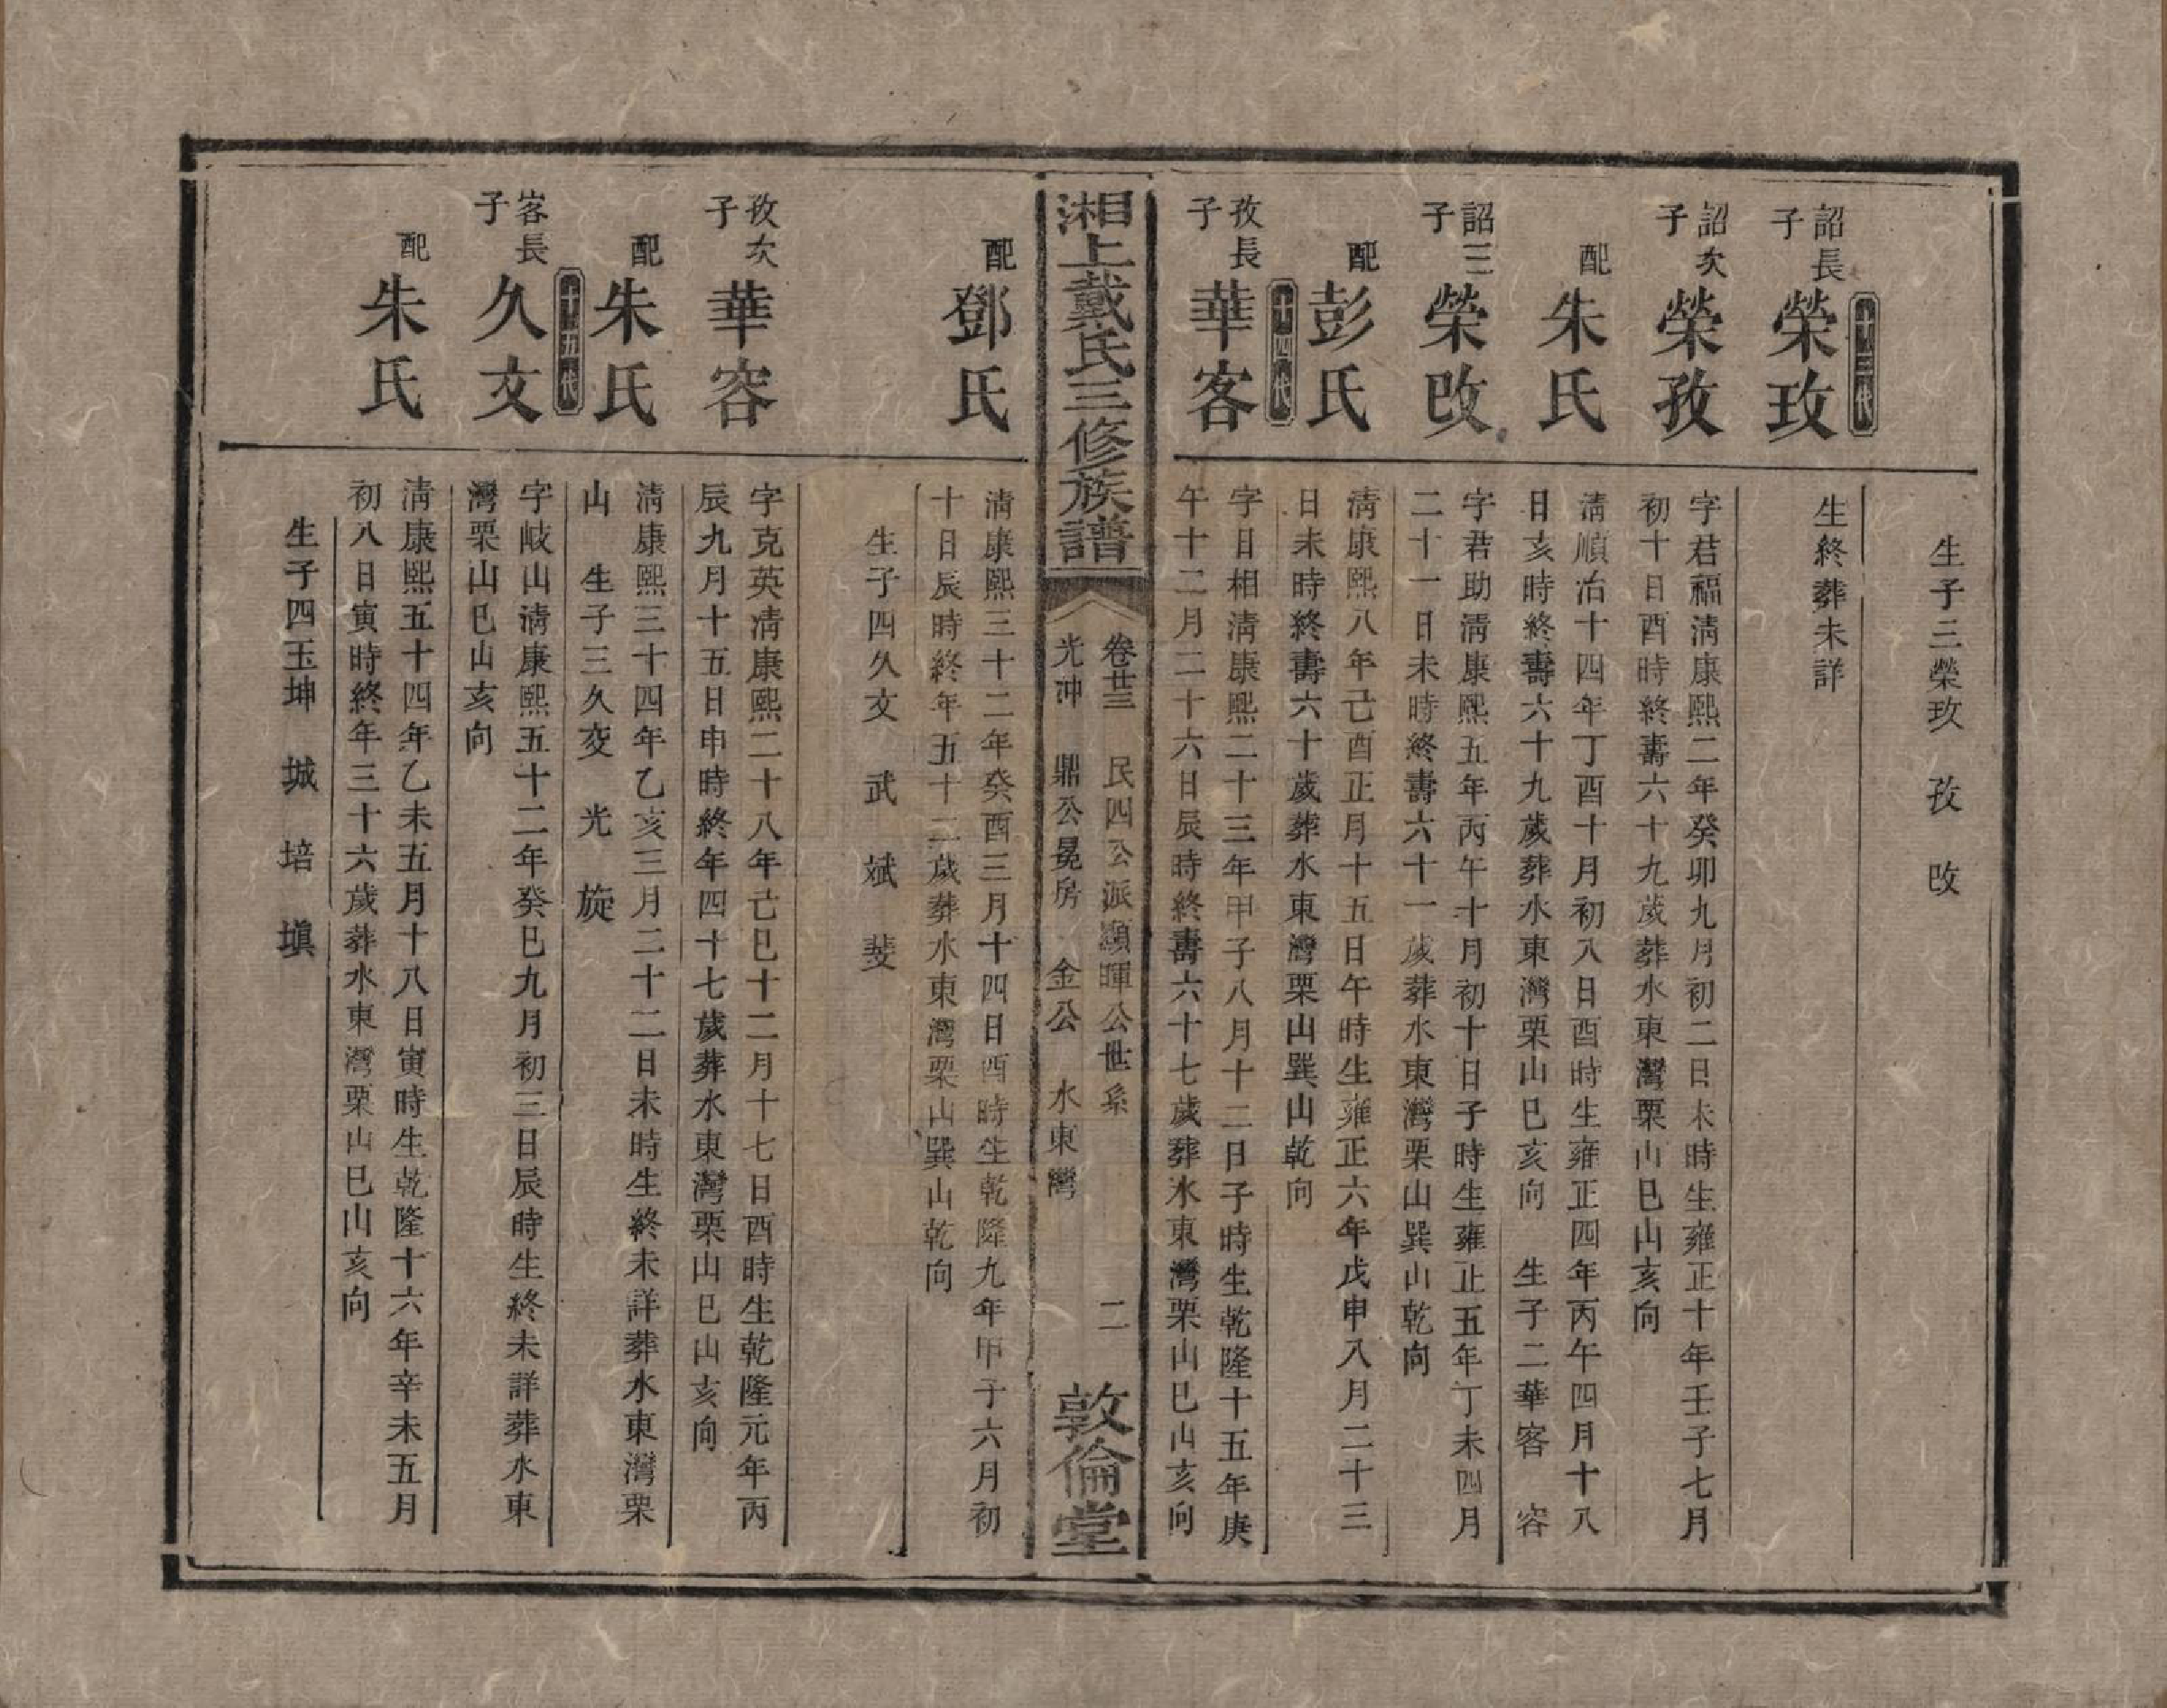 生子三榮玫　孜　改
十三代
詔長子　榮玫
生終葬未詳
詔次子　榮孜
字君福淸康熙二年癸卯九月初二日未時生雍正十年壬子七月
初十日酉時終壽六十九歲葬水東灣栗山巳山亥向
配　朱氏
淸順治十四年丁酉十月初八日酉時生雍正四年丙午四月十八
日亥時終壽六十九歲葬水東灣栗山巳亥向　生子二華客　容
詔三子　榮改
字君助淸康熙五年丙午十月初十日子時生雍正五年丁未四月
二十一日未時終壽六十一歲葬水東灣栗山巽山乾向
配　彭氏
淸康熙八年己酉正月十五日午時生雍正六年戊申八月二十三
日未時終壽六十歲葬水東灣栗山巽山乾向
十四代
孜長子　華客
字日相淸康熙二十三年甲子八月十二日子時生乾隆十五年庚
午十二月二十六日辰時終壽六十七歲葬水東灣栗山巳山亥向
湘上戴氏三修族譜
卷廿三　民四公派顯暉公世系　二
光沖　鼎公晃房　金公　水東灣
敦倫堂
配　鄧氏
淸康熙三十二年癸酉三月十四日酉時生乾隆九年甲子六月初
十日辰時終年五十二歲葬水東灣栗山巽山乾向
生子四久文　武　斌　斐
孜次子　華容
字克英淸康熙二十八年己巳十二月十七日酉時生乾隆元年丙
辰九月十五日申時終年四十七歲葬水東灣栗山巳山亥向
配　朱氏
淸康熙三十四年乙亥三月二十二日未時生終未詳葬水東灣栗
山　生子三久变　光　旋
十五代
客長子　久文
字岐山淸康熙五十二年癸巳九月初三日辰時生終未詳葬水東
灣栗山巳山亥向
配　朱氏
淸康熙五十四年乙未五月十八日寅時生乾隆十六年辛未五月
初八日寅時終年三十六歲葬水東灣栗山巳山亥向
生子四玉坤　城　培　塡